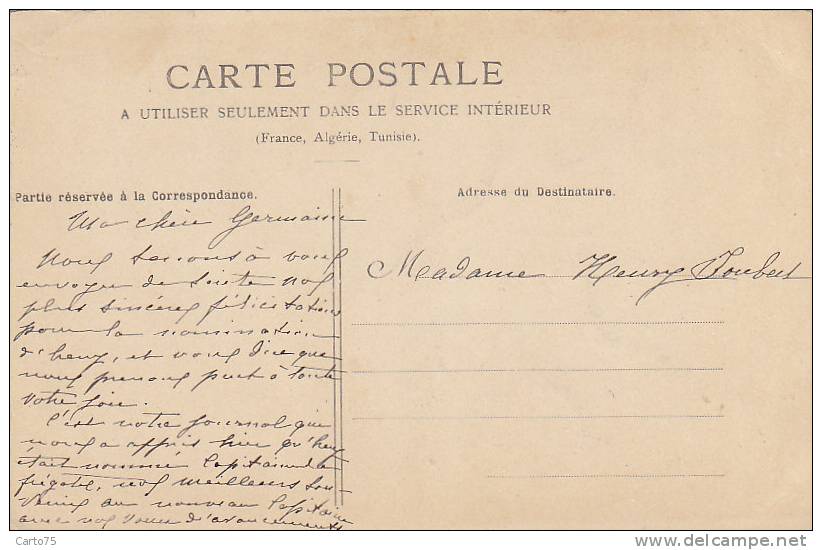 CARTE POSTALE
A UTILISER SEULEMENT DANS LE SERVICE INTÉRIEUR
(France, Algérie, Tunisie).
Partie réservée à la Correspondance.
Adresse du Destinataire.
Ma chère Germaine
Nous tenons à vous
envoyer de suite nos
plus sincères félicitations
pour la nomination
d'henry, et vous dire que
nous prenons part à toute
votre joie.
C'est notre journal que
nous a appris hier qu'henry
était nommé Capitaine de
frégate, nos meilleurs sou-
venirs au nouveau Capitaine
avec nos voeux d'avancements
Madame Henry Joubert
Carto75
www.delcampe.net